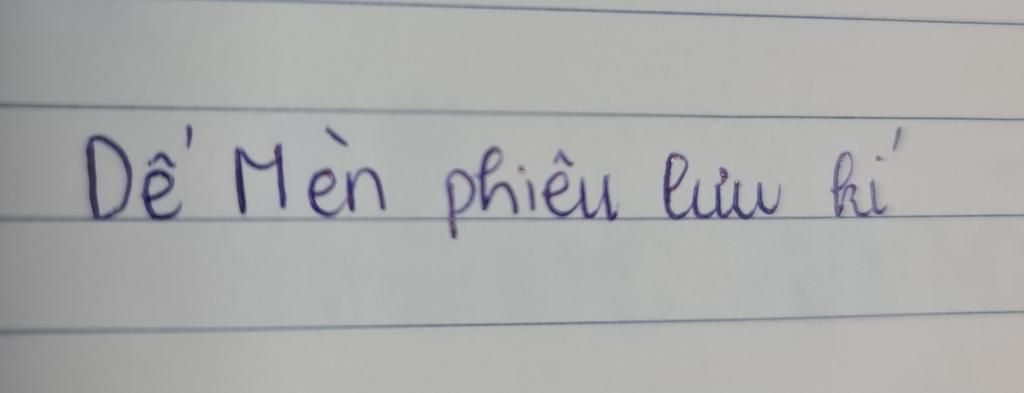 Dế Mèn phiêu lưu kí